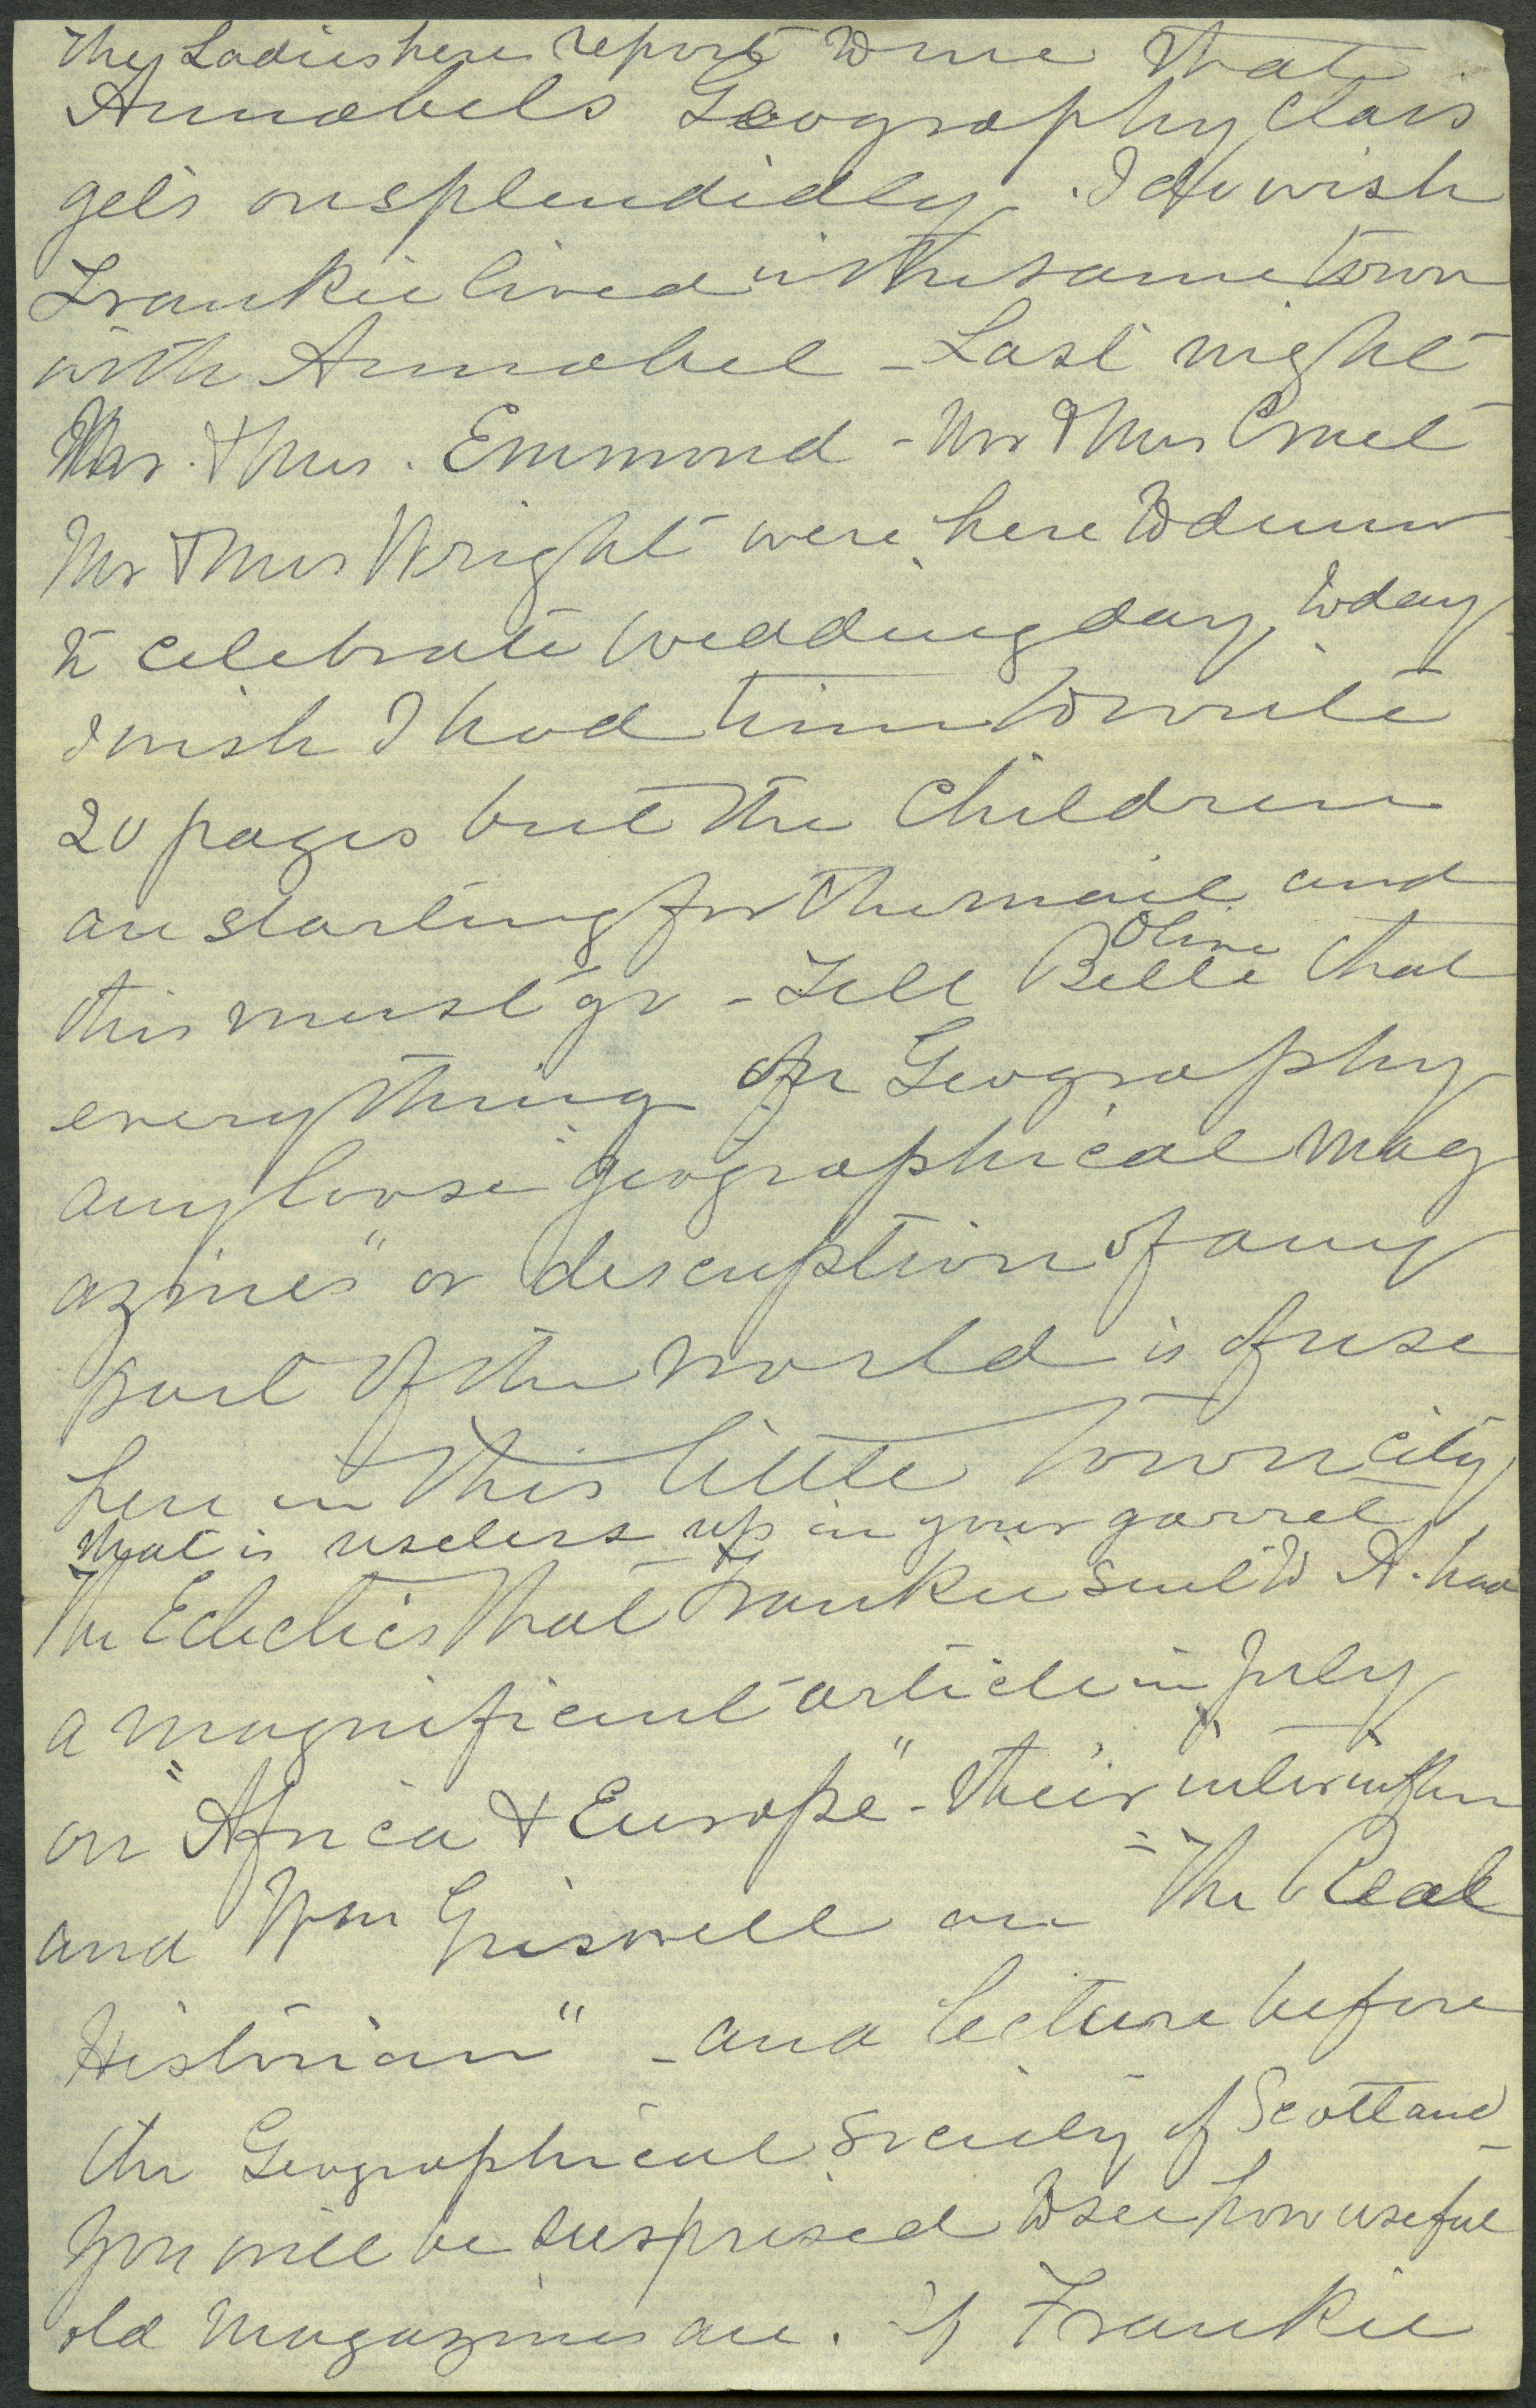 The Ladies here report to me that
Annabels Geography class
gets on splendidly. I do wish
Frankie lived in the same town
with Annabel - Last night
Mr. & Mrs. Emmond - Mr & Mrs
Mr & Mrs Wright were here to dinner
to celebrate wedding day, today
I wish I had time to write
20 pages but the Children
are starting for the mail and
this must go - Tell Belle Olive that
everything on Geography
any loose "geographical mag
azines" or description of any
part of the world is of use
here in this little town city
that is useless up in your garret
The Eclectics that Frankie sent to A. has
a magnificent article in July
on "Africa & Europe" - their
and Wm Griswell on "The Real
Historian" - and lecture before
the Geographical Society of Scotland -
You will be surprised to see how useful
old Magazines are. if Frankie